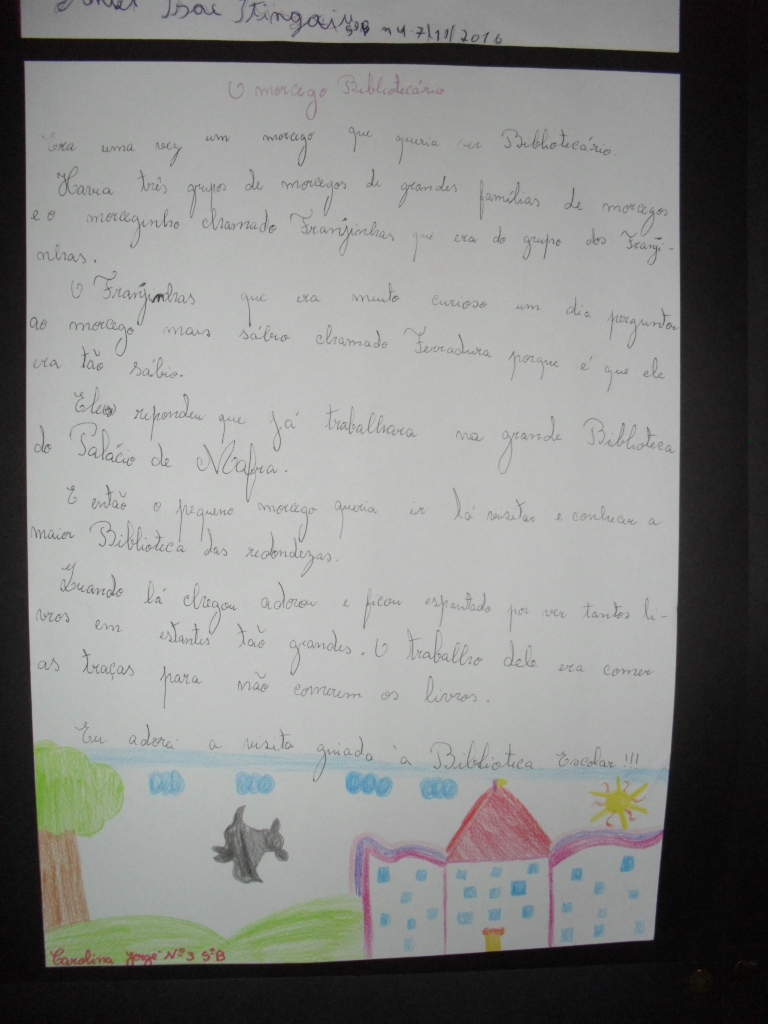 Isac
5ºB nº4 7/11/2016
O morcego Bibliotecário
Era uma vez um morcego que queria ser Bibliotecário.
Havia três grupos de morcegos de grandes famílias de morcegos
e o morceginho chamado Franjinhas que era do grupo dos Franji-
nhas.
O Franjinhas que era muito curioso um dia perguntou
ao morcego mais sábio chamado Ferradura porque é que ele
era tão sábio.
Ele repondeu que já trabalhara na grande Biblioteca
do Palácio de Mafra.
E então o pequeno morcego queria ir lá visitar e conhecer a
maior Biblioteca das redondezas.
Quando lá chegou adorou e ficou espantado por ver tantos li-
vros em estantes tão grandes. O trabalho dele era comer
as traças para não comerem os livros.
Eu adorei a visita guiada à Biblioteca Escolar!!!
Carolina Jorge Nº3 5ºB